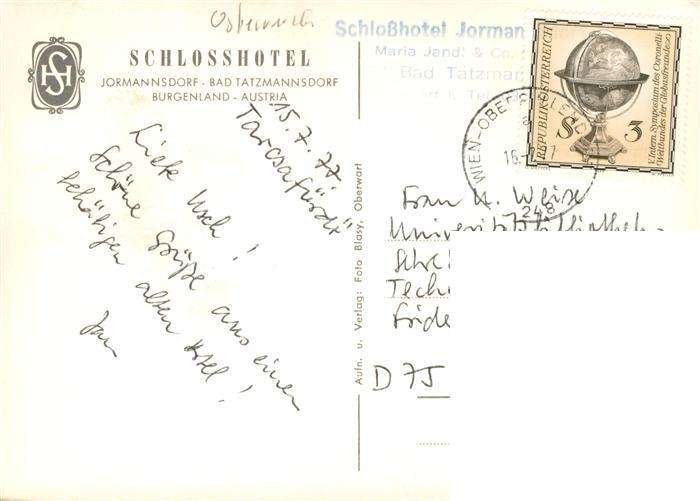 Österreich
SCHLOSSHOTEL
JORMANNSDORF - BAD TATZMANNSDORF
BURGENLAND - AUSTRIA
Schloßhotel Jorman
Maria Jandl & Co.
Bad Tatzman
REPUBLIK ÖSTERREICH
S 3
V. Intern. Symposium des Coronelli-
Weltbundes der Globusfreunde
WIEN-OBER
248
15. 7. 77
Tarcsafürdő
Liebe Usch!
Schöne Grüße aus einem
schäbigen alten Hotel!
Aufn. u. Verlag: Foto Blasy, Oberwart
Frau U. Weise
Universitätsbibliothek
Tech
D 75